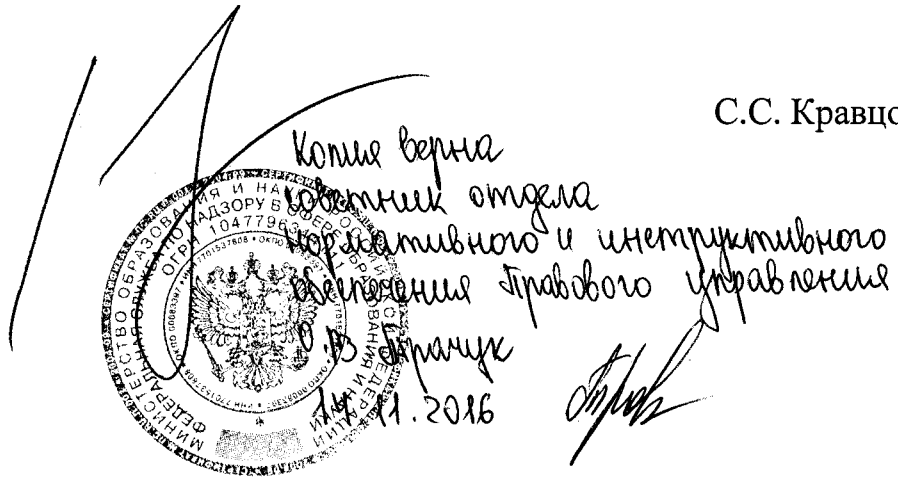 С.С. Кравцо
Копия верна
советник отдела
нормативного и инструктивного
обеспечения Правового управления
О.В. Трачук
14.11.2016
МИНИСТЕРСТВО ОБРАЗОВАНИЯ И НАУКИ РОССИЙСКОЙ ФЕДЕРАЦИИ
ФЕДЕРАЛЬНАЯ СЛУЖБА ПО НАДЗОРУ В СФЕРЕ ОБРАЗОВАНИЯ И НАУКИ
ОГРН 10477963